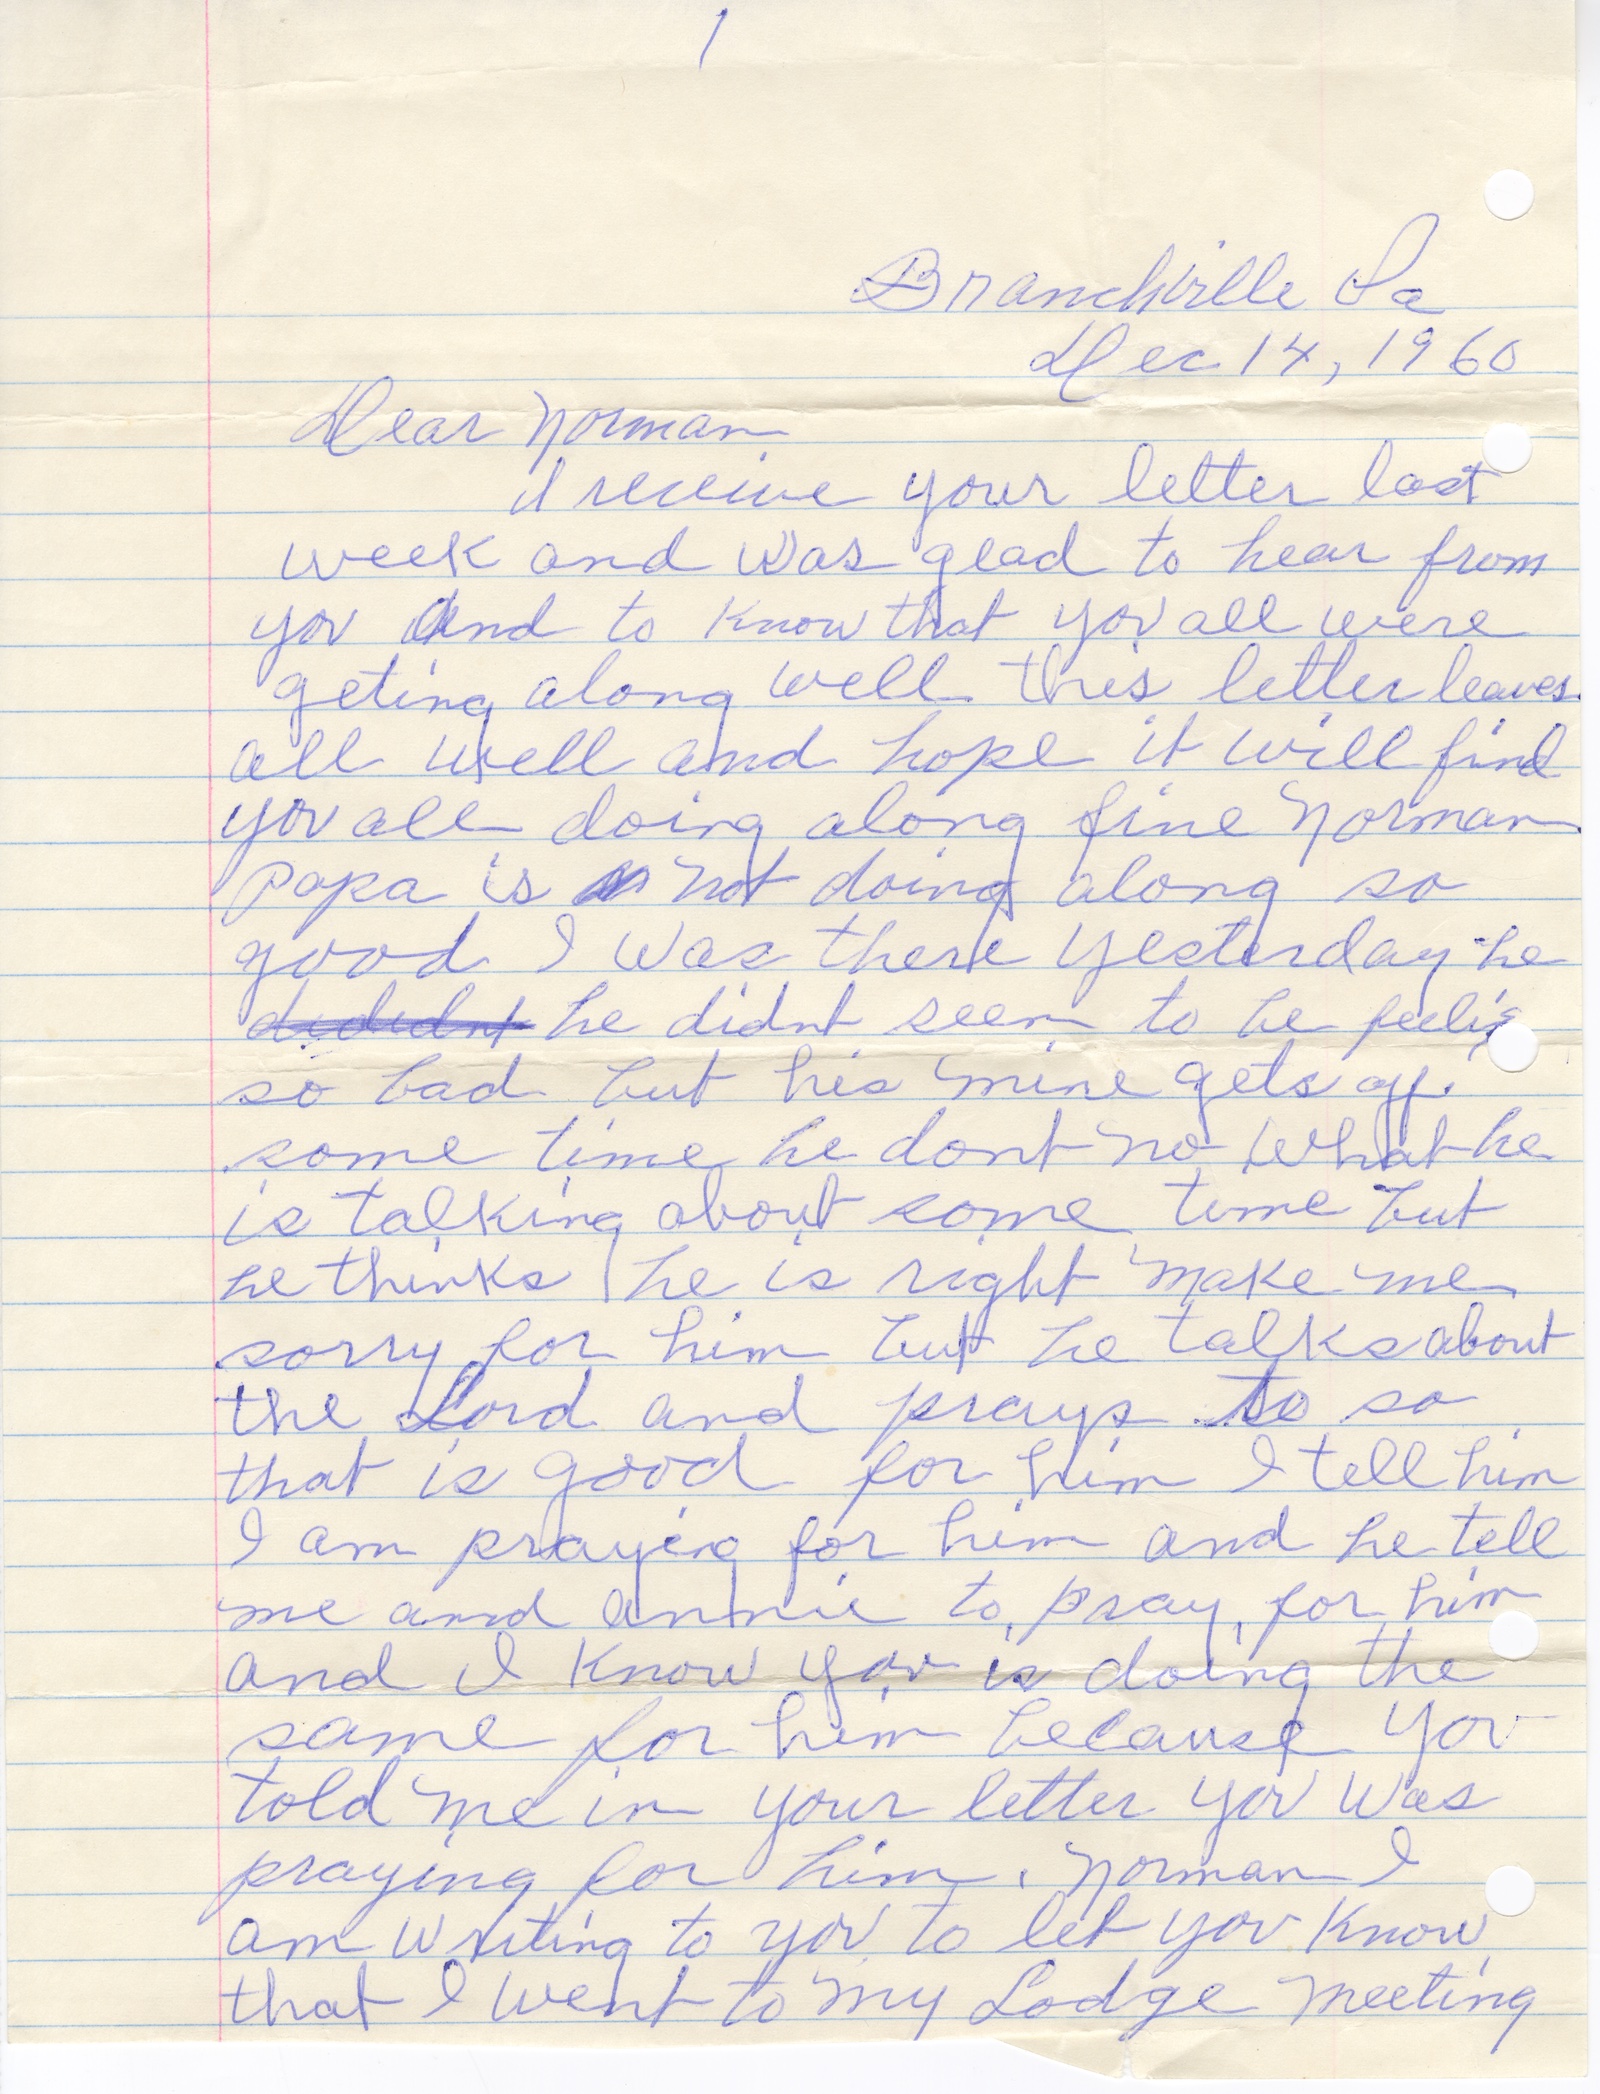 1
Branchville Va
Dec 14, 1960
Dear Norman
I receive your letter last
week and was glad to hear from
you and to know that you all were
geting along well this letter leaves
all well and hope it will find
you all doing along fine Norman
Papa is not doing along so
good I was there yesterday he
dididnt he didnt seem to be feelig
so bad but his mine gets off
some time he dont no what he
is talking about some time but
he thinks he is right make me
sorry for him but he talks about
the Lord and prays to so
that is good for him I tell him
I am praying for him and he tell
me and Annie to pray for him
and I know you is doing the
same for him because you
told me in your letter you was
praying for him. Norman I
am writing to you to let you know
that I went to my Lodge meeting